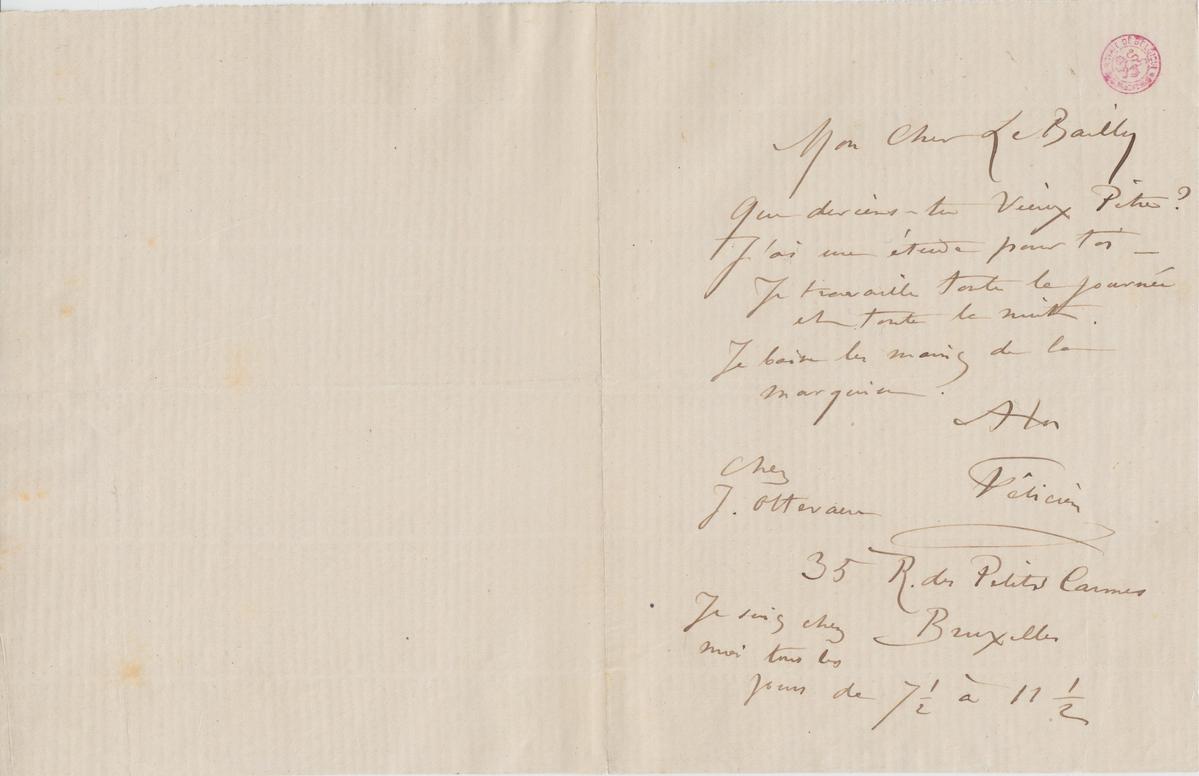 Mon Cher Le Bailly
Que deviens-tu Vieux Pitre ?
J'ai une étude pour toi —
Je travaille toute la journée
et toute la nuit.
Je baise les mains de la
marquise.
A toi
Félicien
Chez
J. Ottevaere
35 R. des Petits Carmes
Bruxelles
Je suis chez
moi tous les
jours de 7 1/2 à 11 1/2